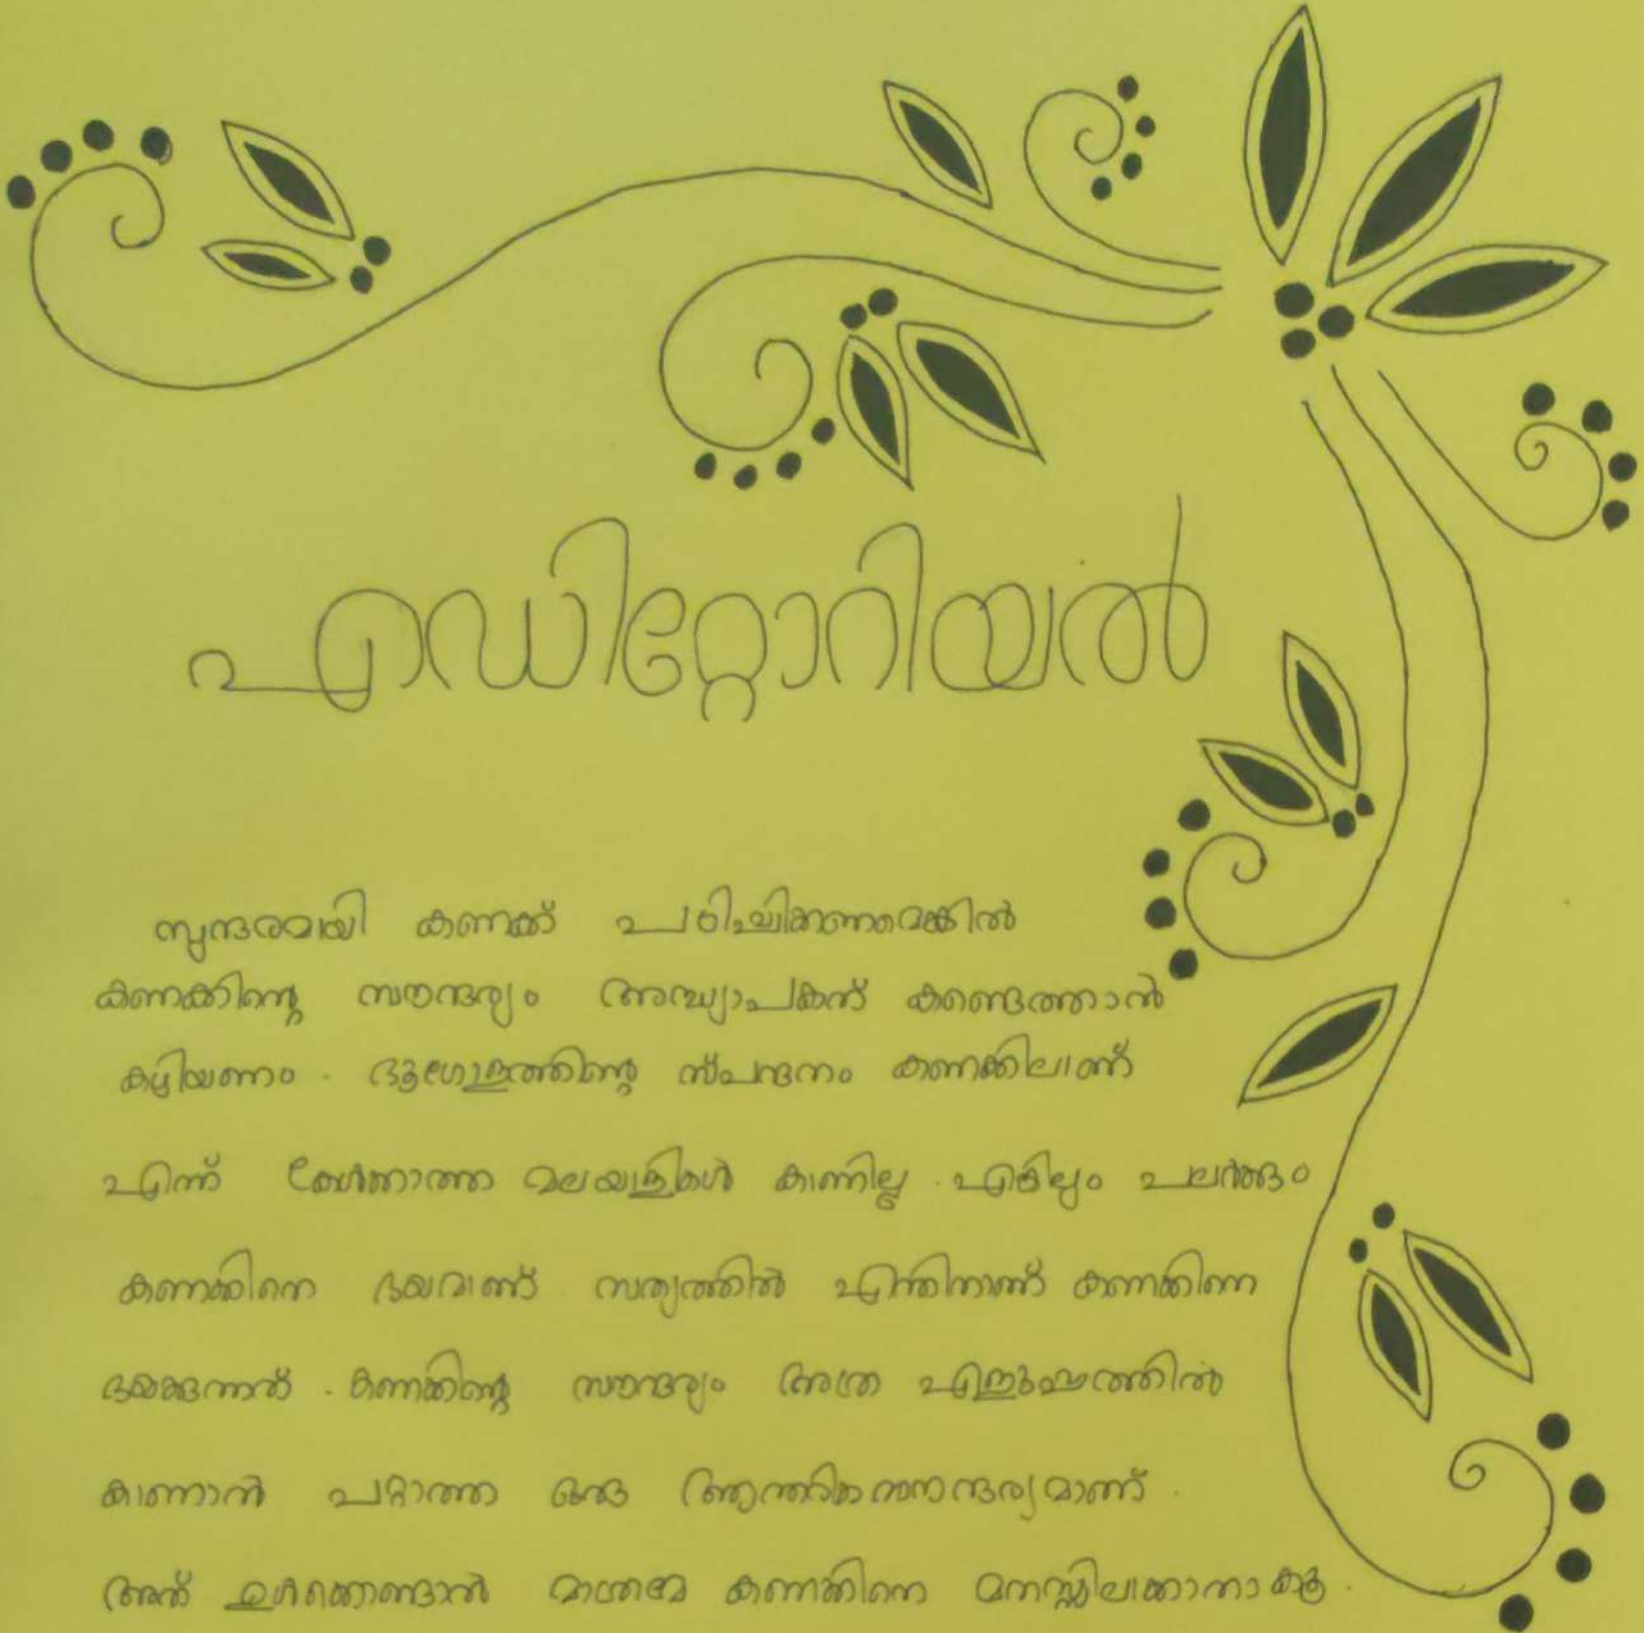 എഡിറ്റോറിയൽ
സുന്ദരമായി കണക്ക് പഠിപ്പിക്കണമെങ്കിൽ
കണക്കിന്റെ സൗന്ദര്യം അദ്ധ്യാപകന് കണ്ടെത്താൻ
കഴിയണം. ഭൂഗോളത്തിന്റെ സ്പന്ദനം കണക്കിലാണ്
എന്ന് കേൾക്കാത്ത മലയാളികൾ കാണില്ല. എങ്കിലും പലർക്കും
കണക്കിനെ ഭയമാണ് സത്യത്തിൽ എന്തിനാണ് കണക്കിനെ
ഭയക്കുന്നത്. കണക്കിന്റെ സൗന്ദര്യം അത്ര എളുപ്പത്തിൽ
കാണാൻ പറ്റാത്ത ഒരു ആന്തരികസൗന്ദര്യമാണ്.
അത് ഉൾക്കൊണ്ടാൽ മാത്രമേ കണക്കിനെ മനസ്സിലാക്കാനാകൂ.